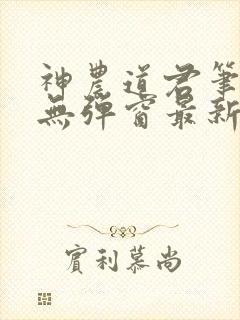 神農道君筆
無彈窗最新
實利慕尚